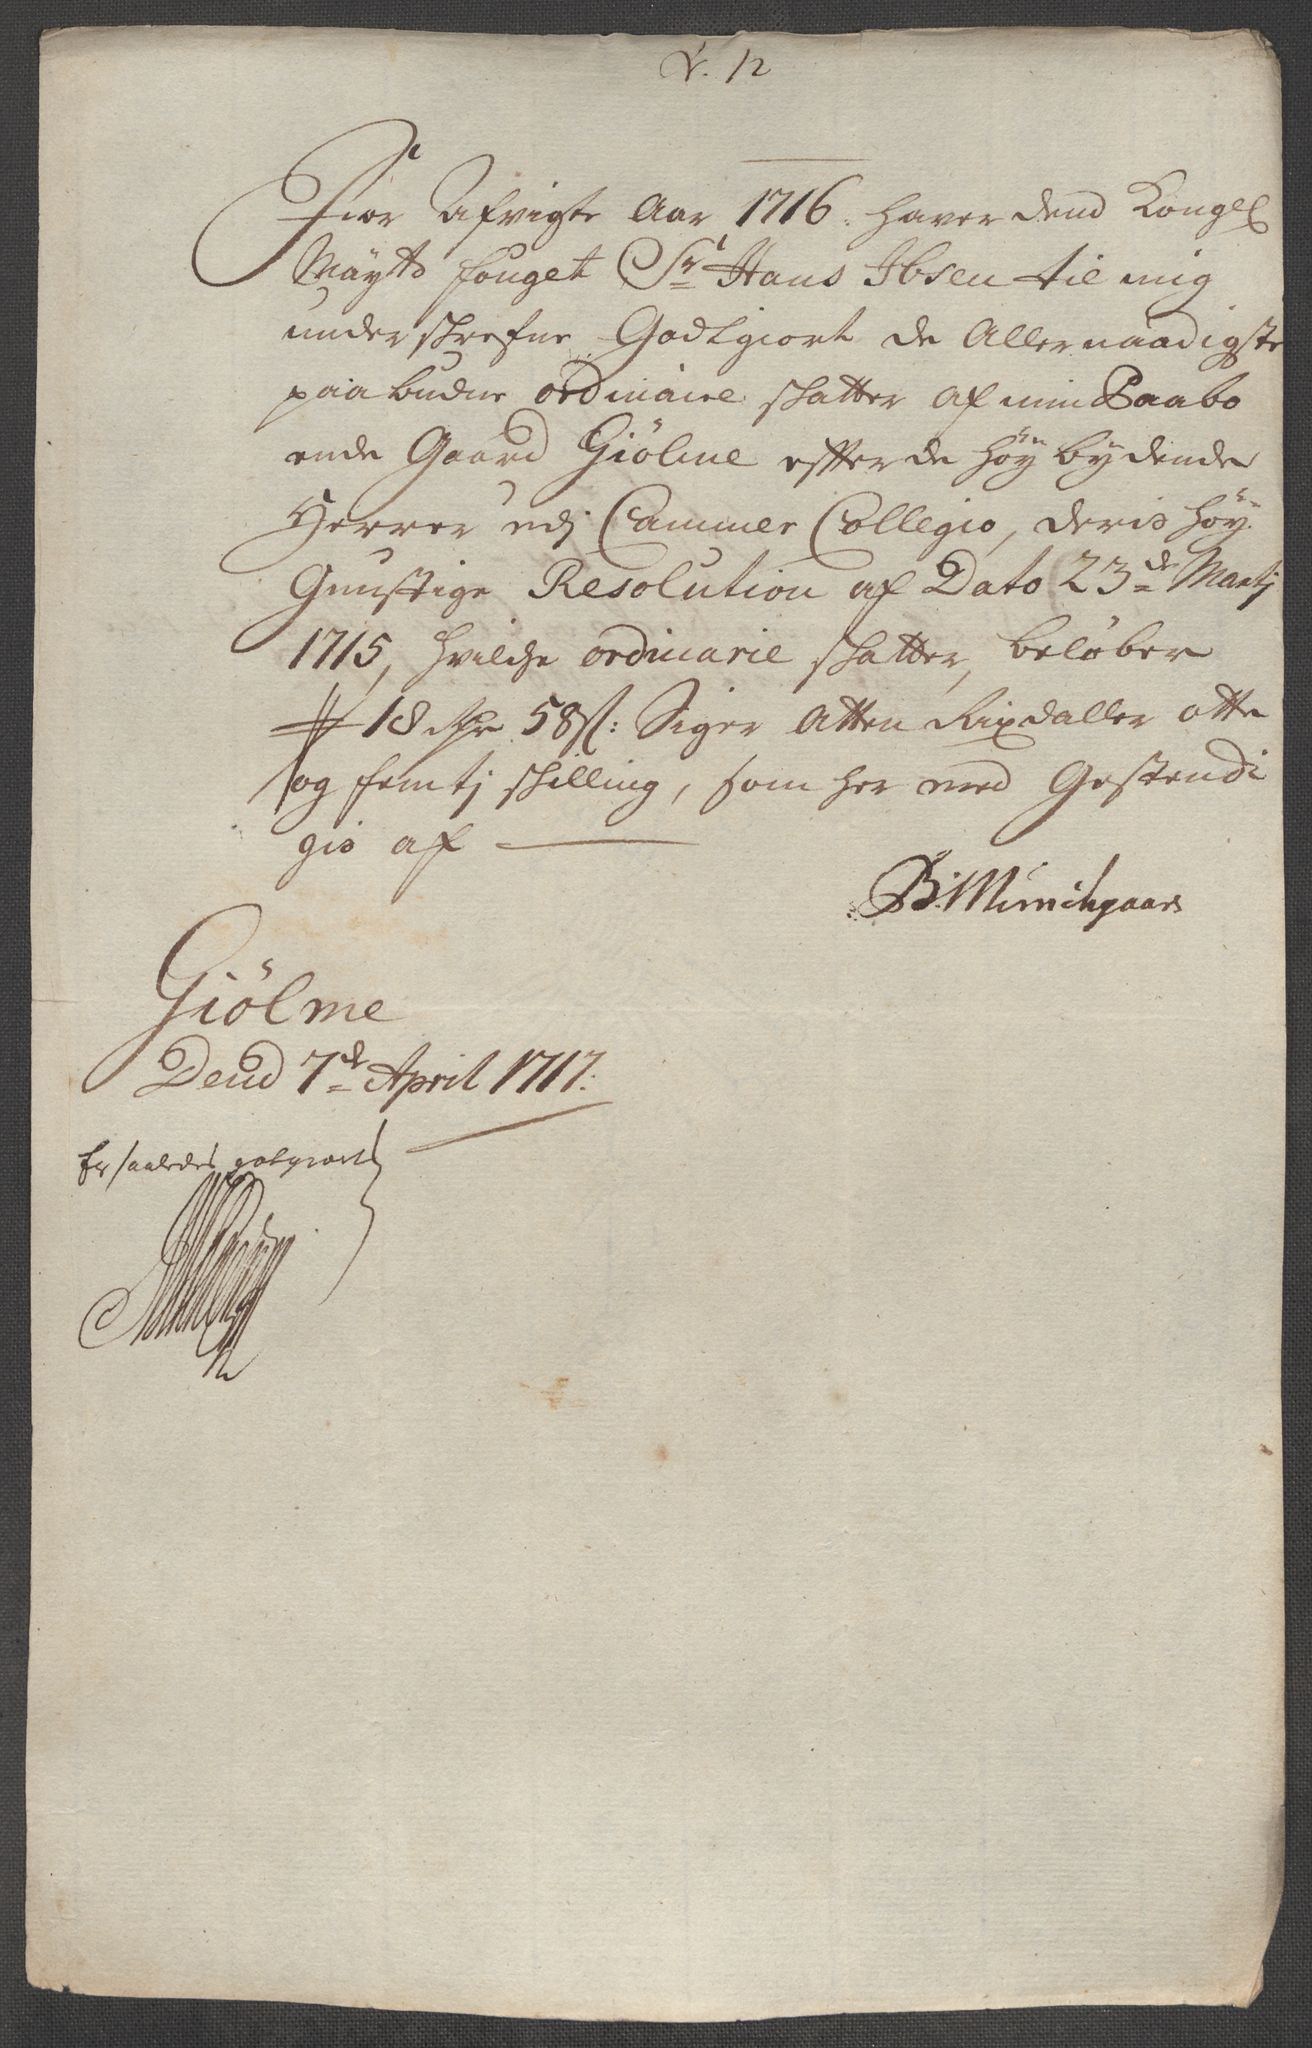 N. 12
Fior Afvigte Aar 1716. haver dend Kongel
Mäyts fouget Sr Hans Ibsen til mig
underskrefne Godtgiort de Allernaadigste
paabudne ordinaire skatter af min Paabo
ende Gaard Giölme effter de höybydende
Herrer udj Cammer Collegio, deris höy
Gunstige Resolution af Dato 23de Martj
1715, hvilche ordinarie skatter, beløber
18 rdr 58 s: Siger Atten Rixdaller otte
og femtj skilling, som her med Gestendi
gis af
B. Münchgaard
Giölme
Dend 7de April 1717.
Er saaledes gotgiort